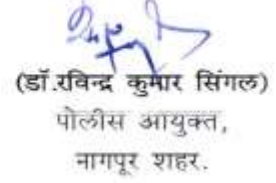 (डॉ.रविन्द्र कुमार सिंगल)
पोलीस आयुक्त,
नागपूर शहर.